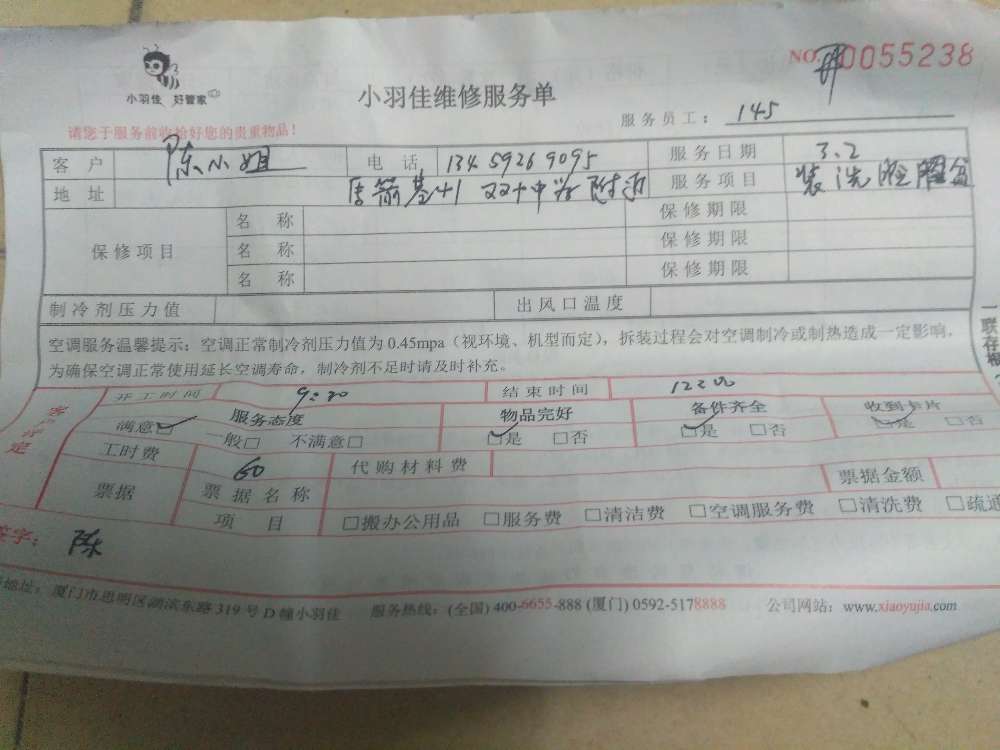 NO. 0055238
小羽佳 好管家
小羽佳维修服务单
请您于服务前收拾好您的贵重物品！
服务员工： 145
客户 陈小姐 电话 13459269095 服务日期 3.2
地址 双十中学附近 服务项目 装洗脸
保修项目 名称 保修期限
名称 保修期限
名称 保修期限
制冷剂压力值 出风口温度
空调服务温馨提示：空调正常制冷剂压力值为 0.45mpa（视环境、机型而定），拆装过程会对空调制冷或制热造成一定影响，
为确保空调正常使用延长空调寿命，制冷剂不足时请及时补充。
一联存根
开工时间 9:20 结束时间 12:00
服务态度 物品完好 备件齐全 收到卡片
满意☑ 一般□ 不满意□ ☑是 □否 ☑是 □否 ☑是 □否
工时费 60 代购材料费
票据 票据名称 票据金额
项目 □搬办公用品 □服务费 □清洁费 □空调服务费 □清洗费 □疏通
签字： 陈
地址：厦门市思明区湖滨东路 319 号 D 幢小羽佳 服务热线：(全国) 400-6655-888 (厦门) 0592-5178888 公司网站：www.xiaoyujia.com